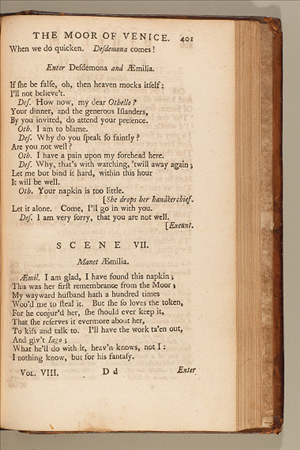 THE MOOR OF VENICE. 401
When we do quicken. Desdemona comes!
Enter Desdemona and Æmilia.
If she be false, oh, then heaven mocks itself;
I'll not believe't.
Des. How now, my dear Othello?
Your dinner, and the generous Islanders,
By you invited, do attend your presence.
Oth. I am to blame.
Des. Why do you speak so faintly?
Are you not well?
Oth. I have a pain upon my forehead here.
Des. Why, that's with watching, 'twill away again;
Let me but bind it hard, within this hour
It will be well.
Oth. Your napkin is too little.
[She drops her handkerchief.
Let it alone. Come, I'll go in with you.
Des. I am very sorry, that you are not well.
[Exeunt.
SCENE VII.
Manet Æmilia.
Æmil. I am glad, I have found this napkin;
This was her first remembrance from the Moor;
My wayward husband hath a hundred times
Woo'd me to steal it. But she so loves the token,
For he conjur'd her, she should ever keep it,
That she reserves it evermore about her,
To kiss and talk to. I'll have the work ta'en out,
And giv't Iago;
What he'll do with it, heav'n knows, not I:
I nothing know, but for his fantasy.
VOL. VIII. D d Enter